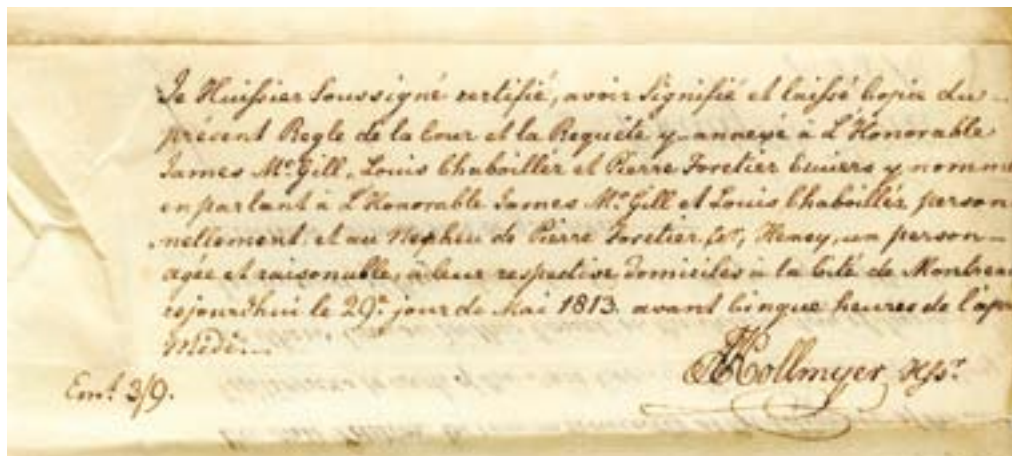 Je Huissier Soussigné certifié, avoir Signifié et laissé Copie du
présent Regle de la Cour et la Requête y annexé à L'Honorable
James Mc. Gill, Louis Chaboillez et Pierre Foretier Ecuiers y nomm
en parlant à L'Honorable James Mc. Gill et Louis Chaboillez, person
nellement, et au Nepheu de Pierre Foretier, Heney, un person
agée et raisonable, à leur respective domiciles à la Cité de Montrea
cejourdhui le 29e. jour de Mai 1813 avant Cinque heures de l'apr
Midi
Kollmyer Hssr.
Emt. 3/9.